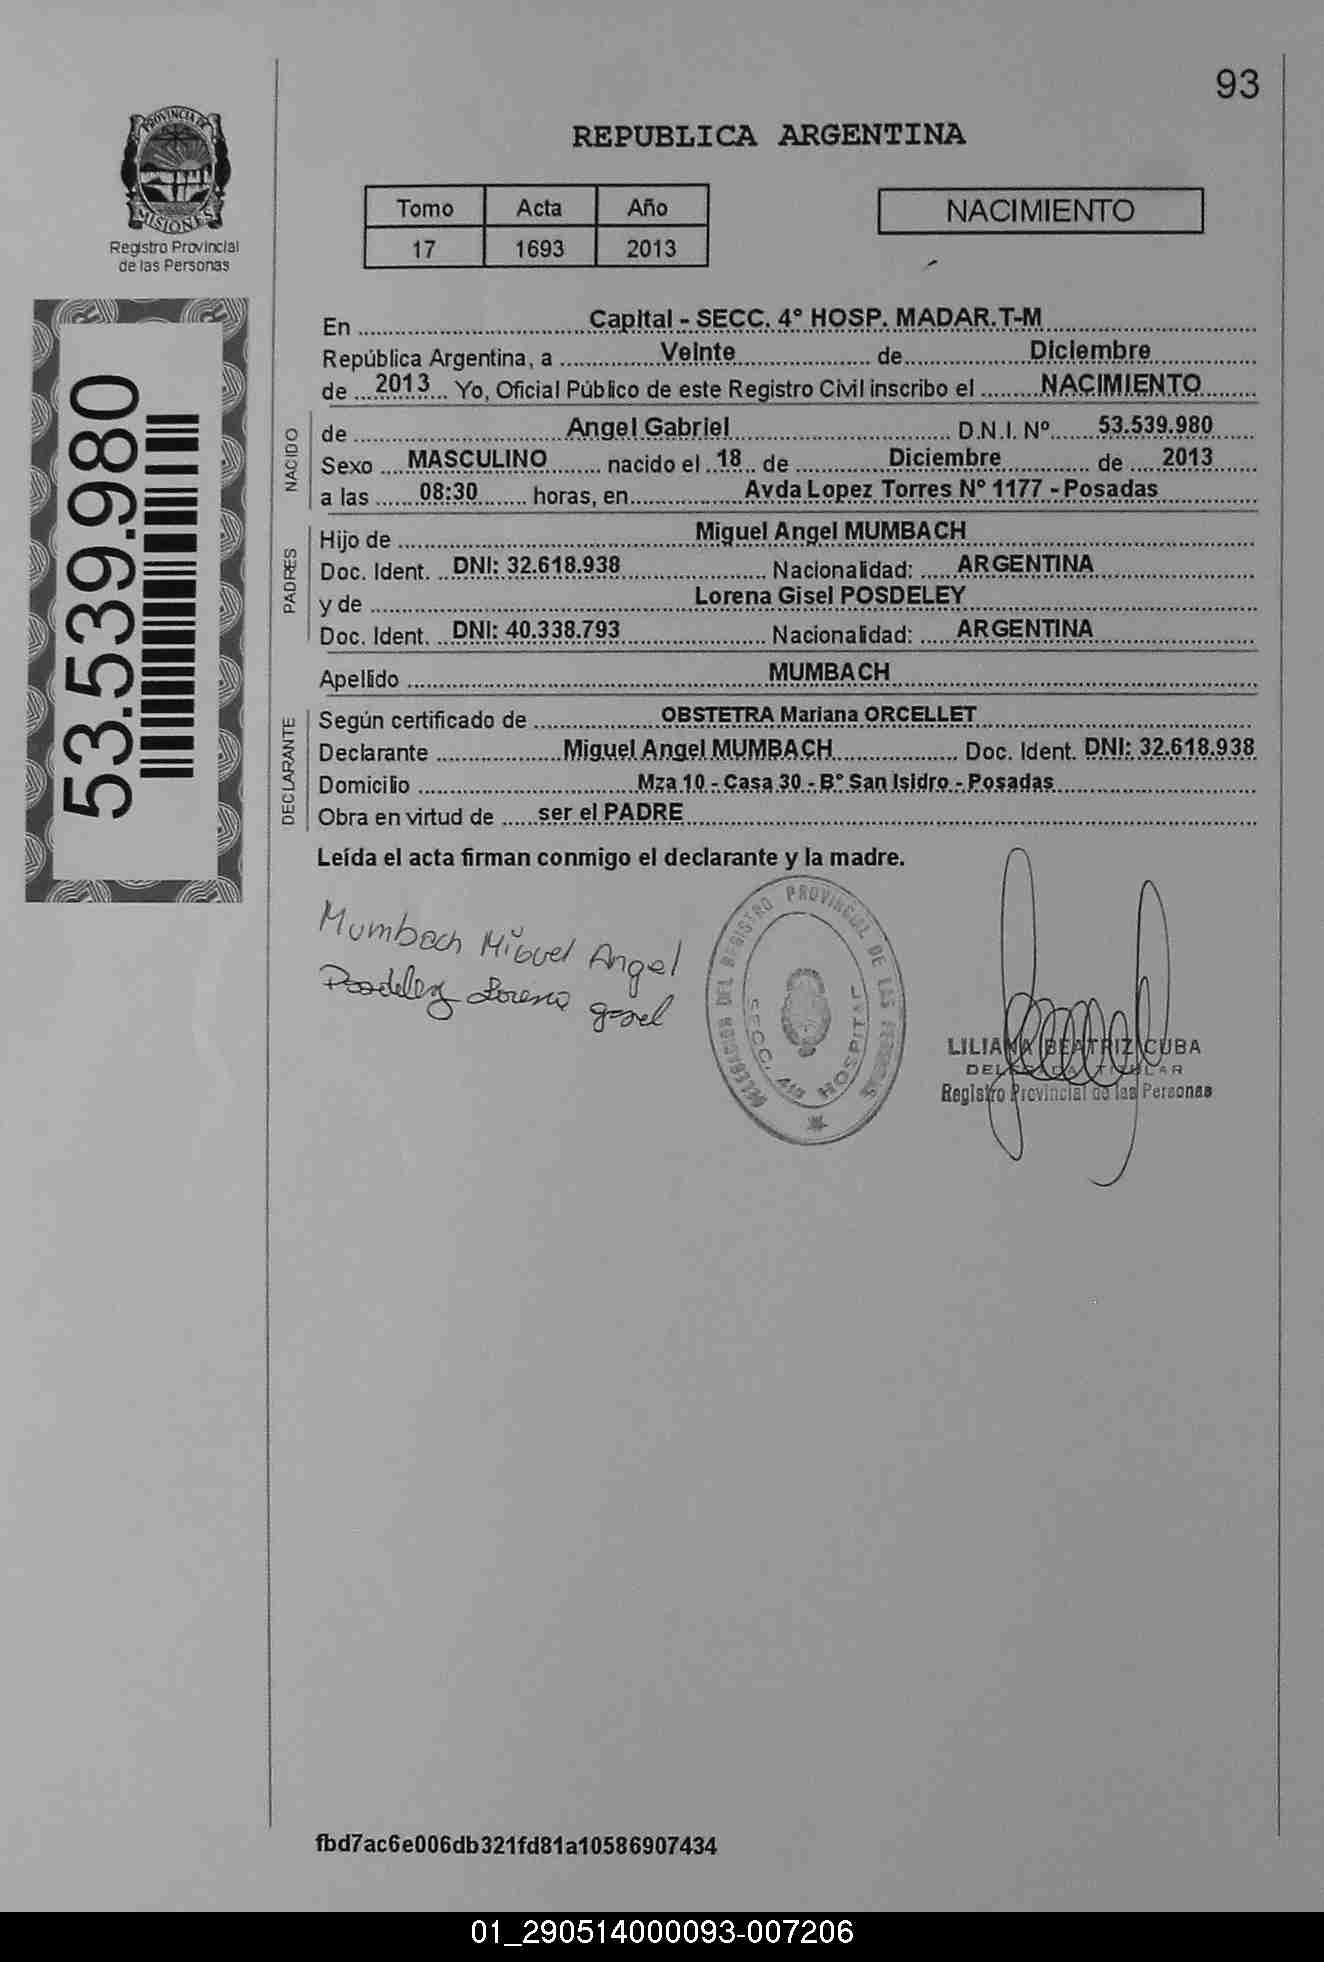 93
PROVINCIA DE
MISIONES
Registro Provincial
de las Personas
REPUBLICA ARGENTINA
Tomo Acta Año
17 1693 2013
NACIMIENTO
53.539.980
En Capital - SECC. 4° HOSP. MADAR.T-M
República Argentina, a Veinte de Diciembre
de 2013 Yo, Oficial Público de este Registro Civil inscribo el NACIMIENTO
NACIDO
de Angel Gabriel D.N.I. Nº 53.539.980
Sexo MASCULINO nacido el 18 de Diciembre de 2013
a las 08:30 horas, en Avda Lopez Torres Nº 1177 - Posadas
PADRES
Hijo de Miguel Angel MUMBACH
Doc. Ident. DNI: 32.618.938 Nacionalidad: ARGENTINA
y de Lorena Gisel POSDELEY
Doc. Ident. DNI: 40.338.793 Nacionalidad: ARGENTINA
Apellido MUMBACH
DECLARANTE
Según certificado de OBSTETRA Mariana ORCELLET
Declarante Miguel Angel MUMBACH Doc. Ident. DNI: 32.618.938
Domicilio Mza 10 - Casa 30 - B° San Isidro - Posadas
Obra en virtud de ser el PADRE
Leída el acta firman conmigo el declarante y la madre.
Mumbach Miguel Angel
Posdeley Lorena
REGISTRO PROVINCIAL DE LAS PERSONAS
SECC. HOSPITAL
LILIANA BEATRIZ CUBA
DELEGADA TITULAR
Registro Provincial de las Personas
fbd7ac6e006db321fd81a10586907434
01_290514000093-007206